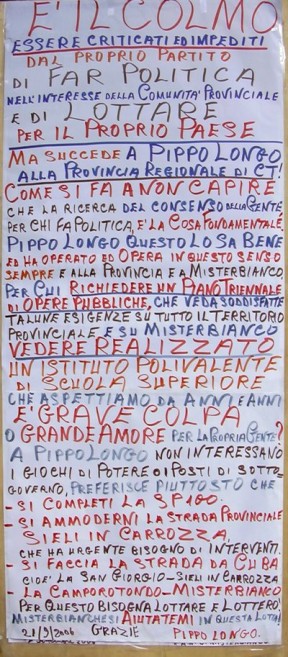 E' IL COLMO
ESSERE CRITICATI ED IMPEDITI
DAL PROPRIO PARTITO
DI FAR POLITICA
NELL'INTERESSE DELLA COMUNITA' PROVINCIALE
E DI LOTTARE
PER IL PROPRIO PAESE
MA SUCCEDE A PIPPO LONGO
ALLA PROVINCIA REGIONALE DI CT!
COME SI FA A NON CAPIRE
CHE LA RICERCA DEL CONSENSO DELLA GENTE
PER CHI FA POLITICA, E' LA COSA FONDAMENTALE.
PIPPO LONGO QUESTO LO SA BENE
ED HA OPERATO ED OPERA IN QUESTO SENSO
SEMPRE E ALLA PROVINCIA E A MISTERBIANCO
PER CUI RICHIEDERE UN PIANO TRIENNALE
DI OPERE PUBBLICHE, CHE VEDA SODDISFATTE
TALUNE ESIGENZE SU TUTTO IL TERRITORIO
PROVINCIALE E SU MISTERBIANCO
VEDERE REALIZZATO
UN ISTITUTO POLIVALENTE
DI SCUOLA SUPERIORE
CHE ASPETTIAMO DA ANNI E ANNI
E' GRAVE COLPA
O GRANDE AMORE PER LA PROPRIA GENTE?
A PIPPO LONGO NON INTERESSANO
I GIOCHI DI POTERE O I POSTI DI SOTTO-
GOVERNO, PREFERISCE PIUTTOSTO CHE
- SI COMPLETI LA SP 160.
- SI AMMODERNI LA STRADA PROVINCIALE
SIELI IN CARROZZA,
CHE HA URGENTE BISOGNO DI INTERVENTI.
- SI FACCIA LA STRADA DA CUBA
CIOE' LA SAN GIORGIO - SIELI IN CARROZZA
- LA CAMPOROTONDO - MISTERBIANCO
PER QUESTO BISOGNA LOTTARE E LOTTERO'
MISTERBIANCHESI AIUTATEMI IN QUESTA LOTTA!
21/9/2006 GRAZIE PIPPO LONGO.